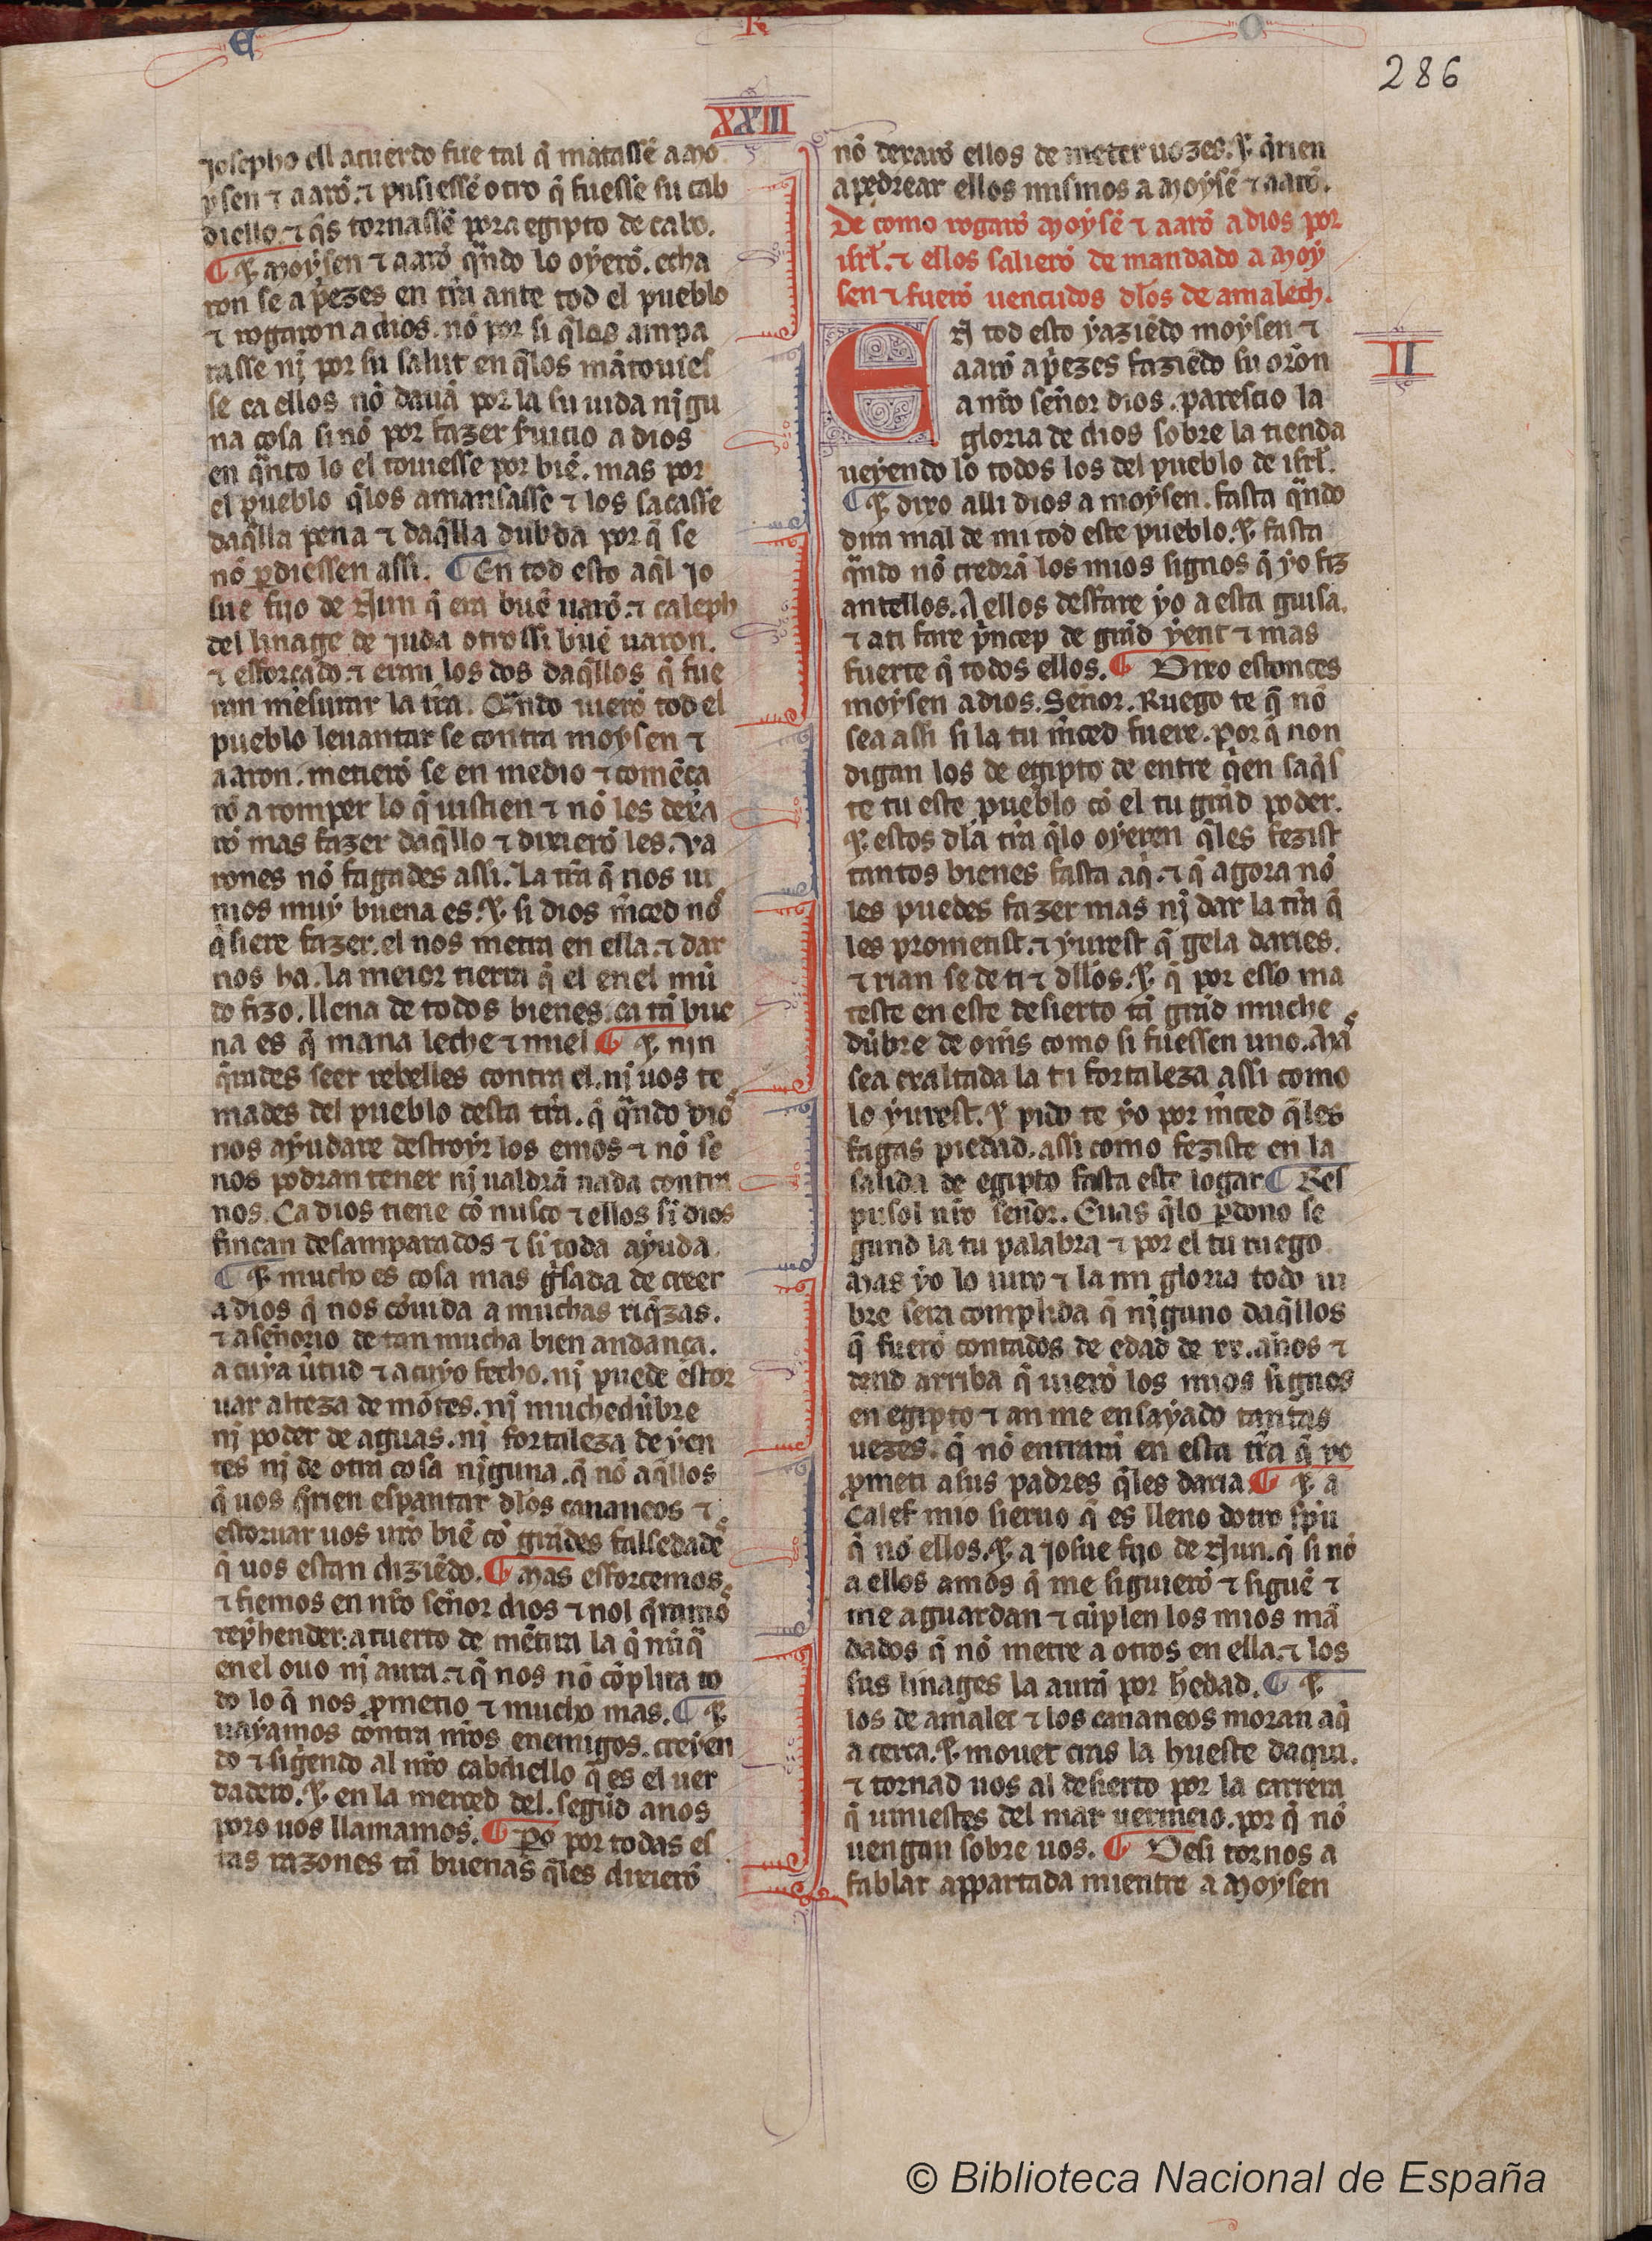 E R O
286
XXIII
josepho ell acuerdo fue tal q̃ matassẽ a mo
ysen ⁊ aarõ. ⁊ pusiessẽ otro q̃ fuesse su cab
diello. ⁊ q̃s tornassẽ pora egipto de cabo.
¶ ⁊ moysen ⁊ aarõ q̃ndo lo oyerõ. echa
ron se a p̃ezes en tr̃ra ante tod el pueblo
⁊ rogaron a dios. nõ por si q̃los ampa
rasse nj̃ por su salut en q̃los mãtouies
se ca ellos nõ dauã por la su uida nj̃gu
na cosa si nõ por fazer s̃uicio a dios
en q̃nto lo el touiesse por biẽ. mas por
el pueblo q̃los amansasse ⁊ los sacasse
daq̃lla pena ⁊ daq̃lla dubda por q̃ se
nõ ꝑdiessen assi. ¶ En tod esto aq̃l jo
sue fijo de Nun q̃ era buẽ uarõ. ⁊ caleph
del linage de juda otrossi buẽ uaron.
⁊ efforçado. ⁊ eran los dos daq̃llos q̃ fue
ran mesurar la tr̃ra. Q̃ndo uierõ tod el
pueblo leuantar se contra moysen ⁊
aaron. metierõ se en medio ⁊ comẽça
rõ a romper lo q̃ uistien ⁊ nõ les dexa
rõ mas fazer daq̃llo ⁊ dixierõ les. Va
rones nõ fagades assi. La tr̃ra q̃ nos ui
mos muy buena es. ⁊ si dios m̃ced nos
q̃siere fazer. el nos metra en ella. ⁊ dar
nos ha. la meior tierra q̃ el en el mũ
do fizo. llena de todos bienes. ca tã bue
na es q̃ mana leche ⁊ miel ¶ ⁊ nin
q̃rades seer rebelles contra el. nj̃ uos te
mades del pueblo desta tr̃ra. q̃ q̃ndo dios
nos ayudare destroyr los emos ⁊ nõ se
nos podran tener nj̃ ualdrã nada contra
nos. Ca dios tiene cõ nusco ⁊ ellos sĩ dios
fincan desamparados ⁊ sĩ toda ayuda.
¶ ⁊ mucho es cosa mas g̃sada de creer
a dios q̃ nos cõuida a muchas riq̃zas.
⁊ a señorio de tan mucha bien andança.
a cuya ũtud ⁊ a cuyo fecho. nj̃ puede estor
uar alteza de mõtes. nj̃ muchedũbre
nj̃ poder de aguas. nj̃ fortaleza de yen
tes nj̃ de otra cosa nj̃guna. q̃ nõ aq̃llos
q̃ uos q̃rien espantar dlos cananeos ⁊
estoruar uos ur̃o biẽ cõ grãdes falsedades
q̃ uos estan diziẽdo. ¶ Mas efforcemos
⁊ fiemos en nr̃o señor dios ⁊ nol q̃ramos
rep̃hender. a tuerto de mẽtira la q̃ nũq̃
en el ouo nj̃ aura. ⁊ q̃ nos nõ cõplira to
do lo q̃ nos ꝓmetio ⁊ mucho mas. ¶ ⁊
uayamos contra nr̃os enemigos. creyen
do ⁊ sigẽndo al nr̃o cabdiello q̃ es el uer
dadero. ⁊ en la merced del. segũd a nos
poro uos llamamos. ¶ Po por todas es
tas razones tã buenas q̃les dixierõ
nõ dexarõ ellos de meter uozes. ⁊ q̃rien
apedrear ellos mismos a moysẽ ⁊ aarõ.
De como rogarõ moysẽ ⁊ aarõ a dios por
isrl̃. ⁊ ellos salierõ de mandado a moy
sen ⁊ fuerõ uencudos dlos de amalech.
II
EN tod esto yaziẽdo moysen ⁊
aarõ a p̃ezes faziẽdo su orõn
a nr̃o señor dios. parescio la
gloria de dios sobre la tienda
ueyendo lo todos los del pueblo de isrl̃.
¶ ⁊ dixo alli dios a moysen. fasta q̃ndo
dira mal de mi tod este pueblo. ⁊ fasta
q̃ndo nõ credrã los mios signos q̃ yo fiz
antellos. A ellos desfare yo a esta guisa.
⁊ a ti fare p̃ncep de grãd yent ⁊ mas
fuerte q̃ todos ellos. ¶ Dixo estonces
moysen a dios. Señor. Ruego te q̃ nõ
sea assi si la tu m̃ced fuere. por q̃ non
digan los de egipto de entre q̃en saq̃s
te tu este pueblo cõ el tu grãd poder.
⁊ estos dla tr̃ra q̃lo oyeren q̃les fezist
tantos bienes fasta aq̃. ⁊ q̃ agora nõ
les puedes fazer mas nj̃ dar la tr̃ra q̃
les prometist. ⁊ yurest q̃ gela daries.
⁊ rian se de ti ⁊ dllos. ⁊ q̃ por esso ma
teste en este desierto tã grãd muche
dũbre de om̃s como si fuessen uno. Mas
sea exaltada la tu fortaleza assi como
lo yurest. ⁊ pido te yo por m̃ced q̃les
fagas piedad. assi como feziste en la
salida de egipto fasta este logar ¶ Res
pusol nr̃o señor. Euas q̃lo ꝑdono se
gund la tu palabra ⁊ por el tu ruego
Mas yo lo iuro ⁊ la mi gloria todo ui
bre sera complida q̃ nj̃guno daq̃llos
q̃ fuerõ contados de edad de xx. años ⁊
dend arriba q̃ uierõ los mios signos
en egipto ⁊ an me ensayado tantas
uezes. q̃ nõ entrarã en esta tr̃ra q̃ yo
ꝓmeti a sus padres q̃les daria ¶ ⁊ a
Calef mio sieruo q̃ es lleno dotro sp̃u
q̃ nõ ellos. ⁊ a josue fijo de Nun. q̃ si nõ
a ellos amos q̃ me siguierõ ⁊ siguẽ ⁊
me aguardan ⁊ cũplen los mios mã
dados q̃ nõ metre a otros en ella. ⁊ los
sus linages la aurã por h̃edad. ¶ ⁊
los de amalec ⁊ los cananeos moran aq̃
a cerca. ⁊ mouet cras la hueste daqui.
⁊ tornad uos al desierto por la carrera
q̃ uiniestes del mar uermeio. por q̃ nõ
uengan sobre uos. ¶ Desi tornos a
fablar appartada mientre a moysen
© Biblioteca Nacional de España